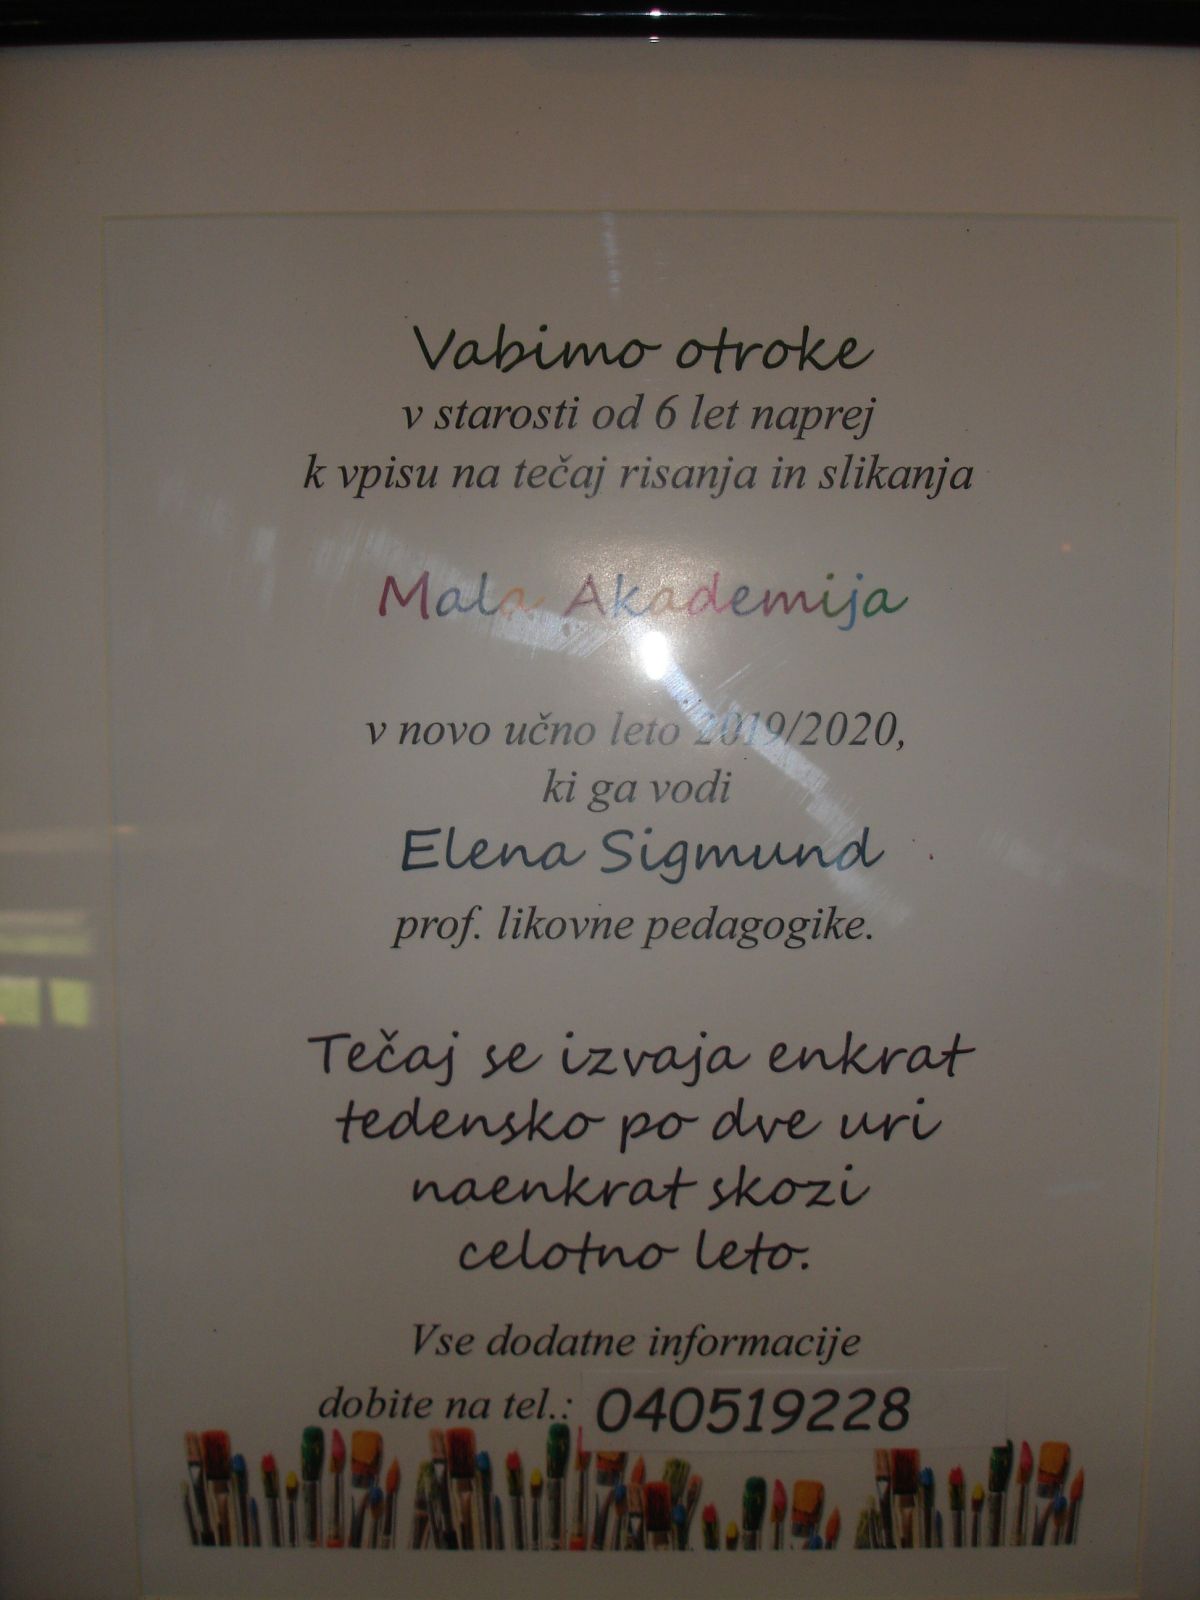 Vabimo otroke
v starosti od 6 let naprej
k vpisu na tečaj risanja in slikanja
Mala Akademija
v novo učno leto 2019/2020,
ki ga vodi
Elena Sigmund
prof. likovne pedagogike.
Tečaj se izvaja enkrat
tedensko po dve uri
naenkrat skozi
celotno leto.
Vse dodatne informacije
dobite na tel.: 040519228